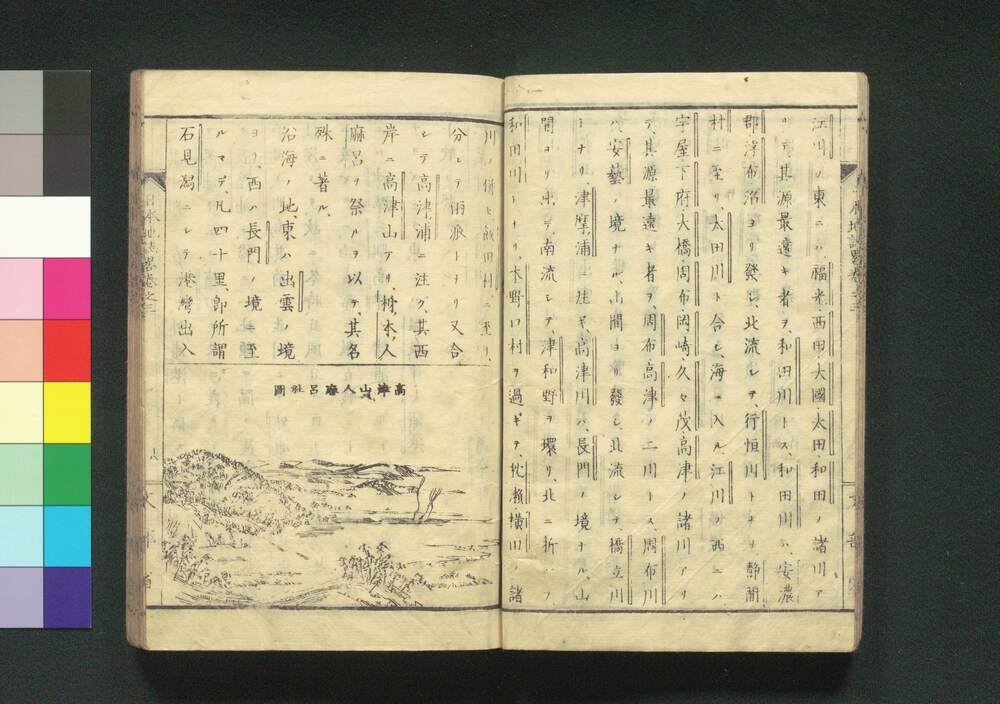 江川ノ東ニハ福光、西田、大國、太田、和田ノ諸川ア
リテ、其源最遠キ者ヲ、和田川トス、和田川ハ、安濃
郡浮布沼ヨリ發シ、北流シテ、行恒川トナリ、靜間
村ニ至リ、太田川ト合シ、海ニ入ル、江川ヨ西ニハ
宇屋、下府、大橋、周布、岡崎、久々茂、高津ノ諸川アリ
テ、其源最遠キ者ヲ、周布、高津ノ二川トス、周布川
ハ、安藝ノ境ナル、山間ヨリ發シ、北流シテ橋立川
トナリ、津摩浦ニ注ギ、高津川ハ、長門ノ境ナル、山
間ヨリ出デ、南流シテ、津和野ヲ環リ、北ニ折レテ
和田川トナリ、木野口村ヲ過ギテ、枇瀬、横田ノ諸
川ノ併セ、飯田村ニ至リ、
分レテ兩派トナリ又合
シテ高津浦ニ注グ、其西
岸ニ高津山アリ、柿本人
麻呂ヲ祭ルヲ以テ、其名
殊ニ著ル、
沿海ノ地、東ハ出雲ノ境
ヨリ、西ハ長門ノ境ニ至
ルマデ、凡四十里、即所謂
石見潟ニシテ港灣出入
高津山人麻呂社圖
日本地誌略卷之三
文部省